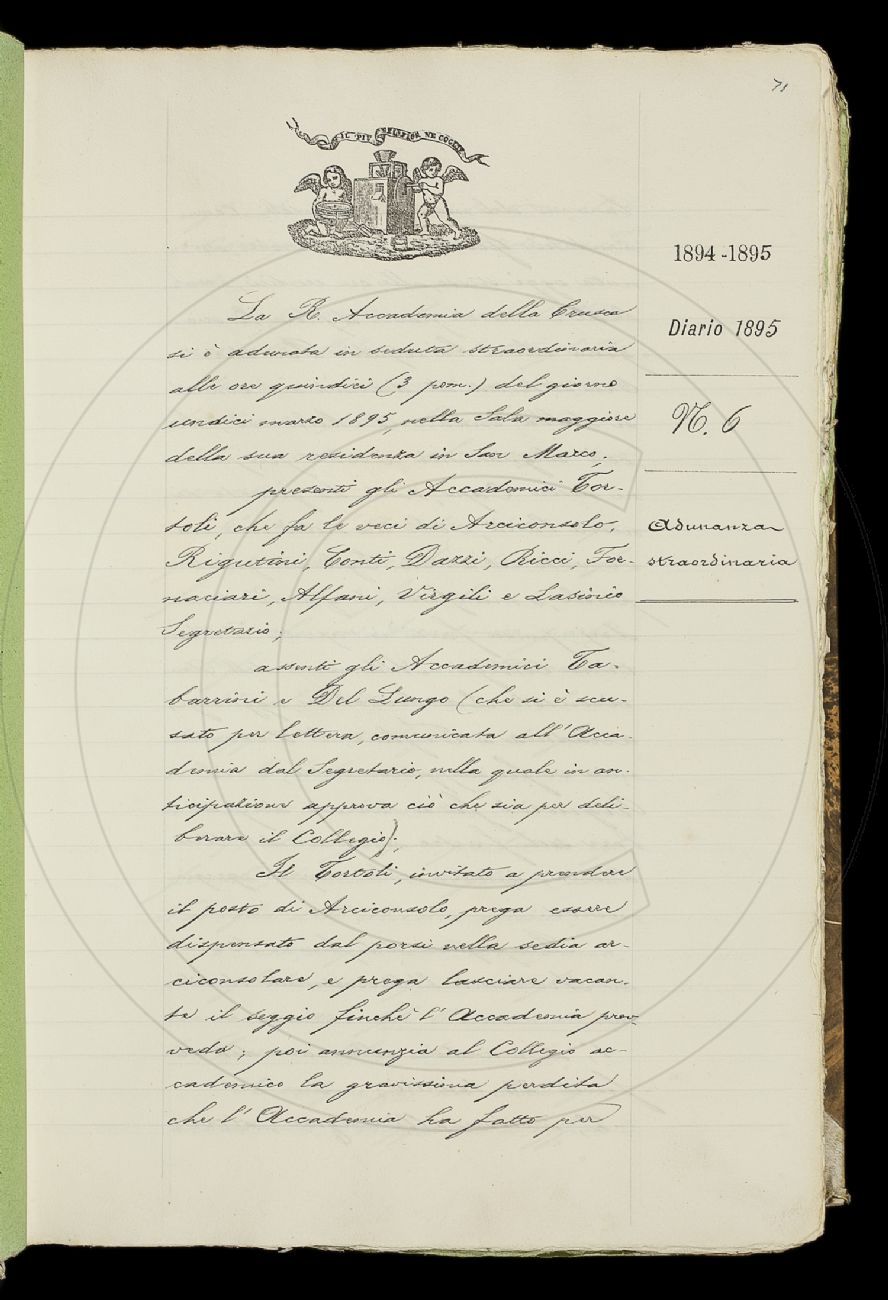 71
IL PIÙ BEL FIOR NE COGLIE
1894-1895
Diario 1895
N. 6
Adunanza
straordinaria
La R. Accademia della Crusca
si è adunata in seduta straordinaria
alle ore quindici (3 pom.) del giorno
undici marzo 1895, nella Sala maggiore
della sua residenza in San Marco,
presenti gli Accademici Tor-
toli, che fa le veci di Arciconsolo,
Rigutini, Conti, Dazzi, Ricci, For-
naciari, Alfani, Virgili e Lasinio
Segretario;
assenti gli Accademici Ta-
barrini e Del Lungo (che si è scu-
sato per lettera, comunicata all'Acca-
demia dal Segretario, nella quale in an-
ticipazione approva ciò che sia per deli-
berare il Collegio);
Il Tortoli, invitato a prendere
il posto di Arciconsolo, prega essere
dispensato dal porsi nella sedia ar-
ciconsolare, e prega lasciare vacan-
te il seggio finchè l'Accademia prov-
veda; poi annunzia al Collegio ac-
cademico la gravissima perdita
che l'Accademia ha fatto per